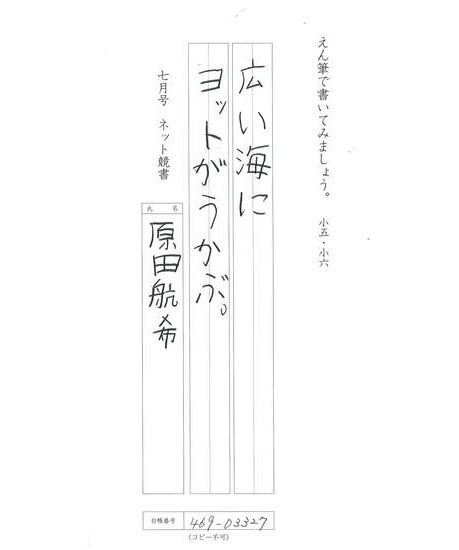 えん筆で書いてみましょう。 小五・小六
広い海に
ヨットがうかぶ。
七月号 ネット競書
氏名
原田航希
台帳番号 469-03327
(コピー不可)